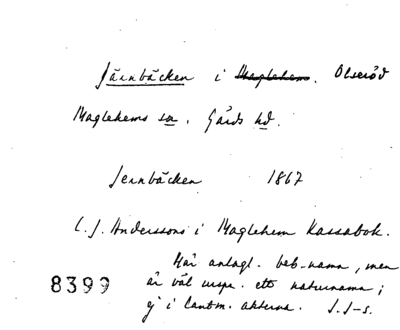 Järnbäcken i Maglehem. Olseröd
Maglehems sn. Gärds hd.
Jernbäcken 1867
C. J. Anderssons i Maglehem Kassabok.
Här antagl. beb-namn, men
är väl urspr. ett naturnamn;
8399
ej i lantm. akterna. J.J-s.